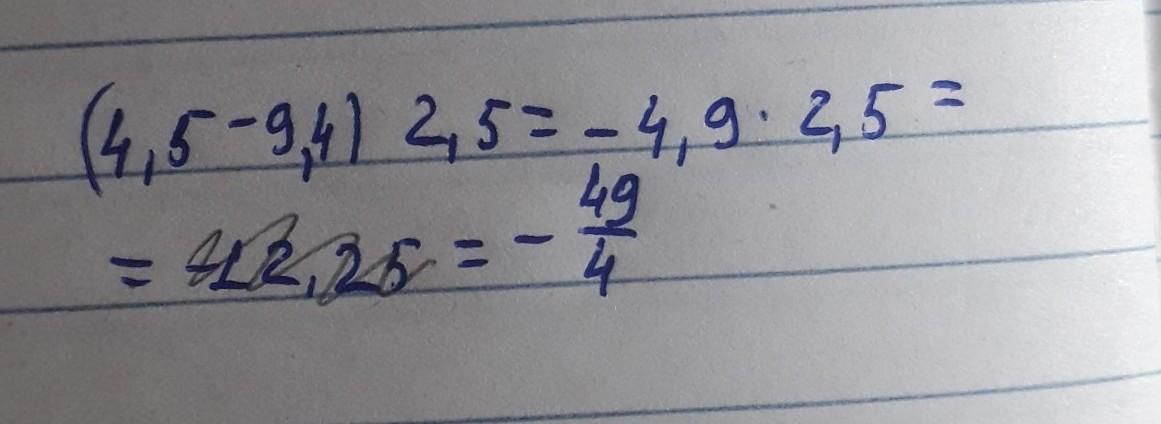 (4,5-9,4) 2,5 = -4,9 · 2,5 =
= -12,25 = - 49/4